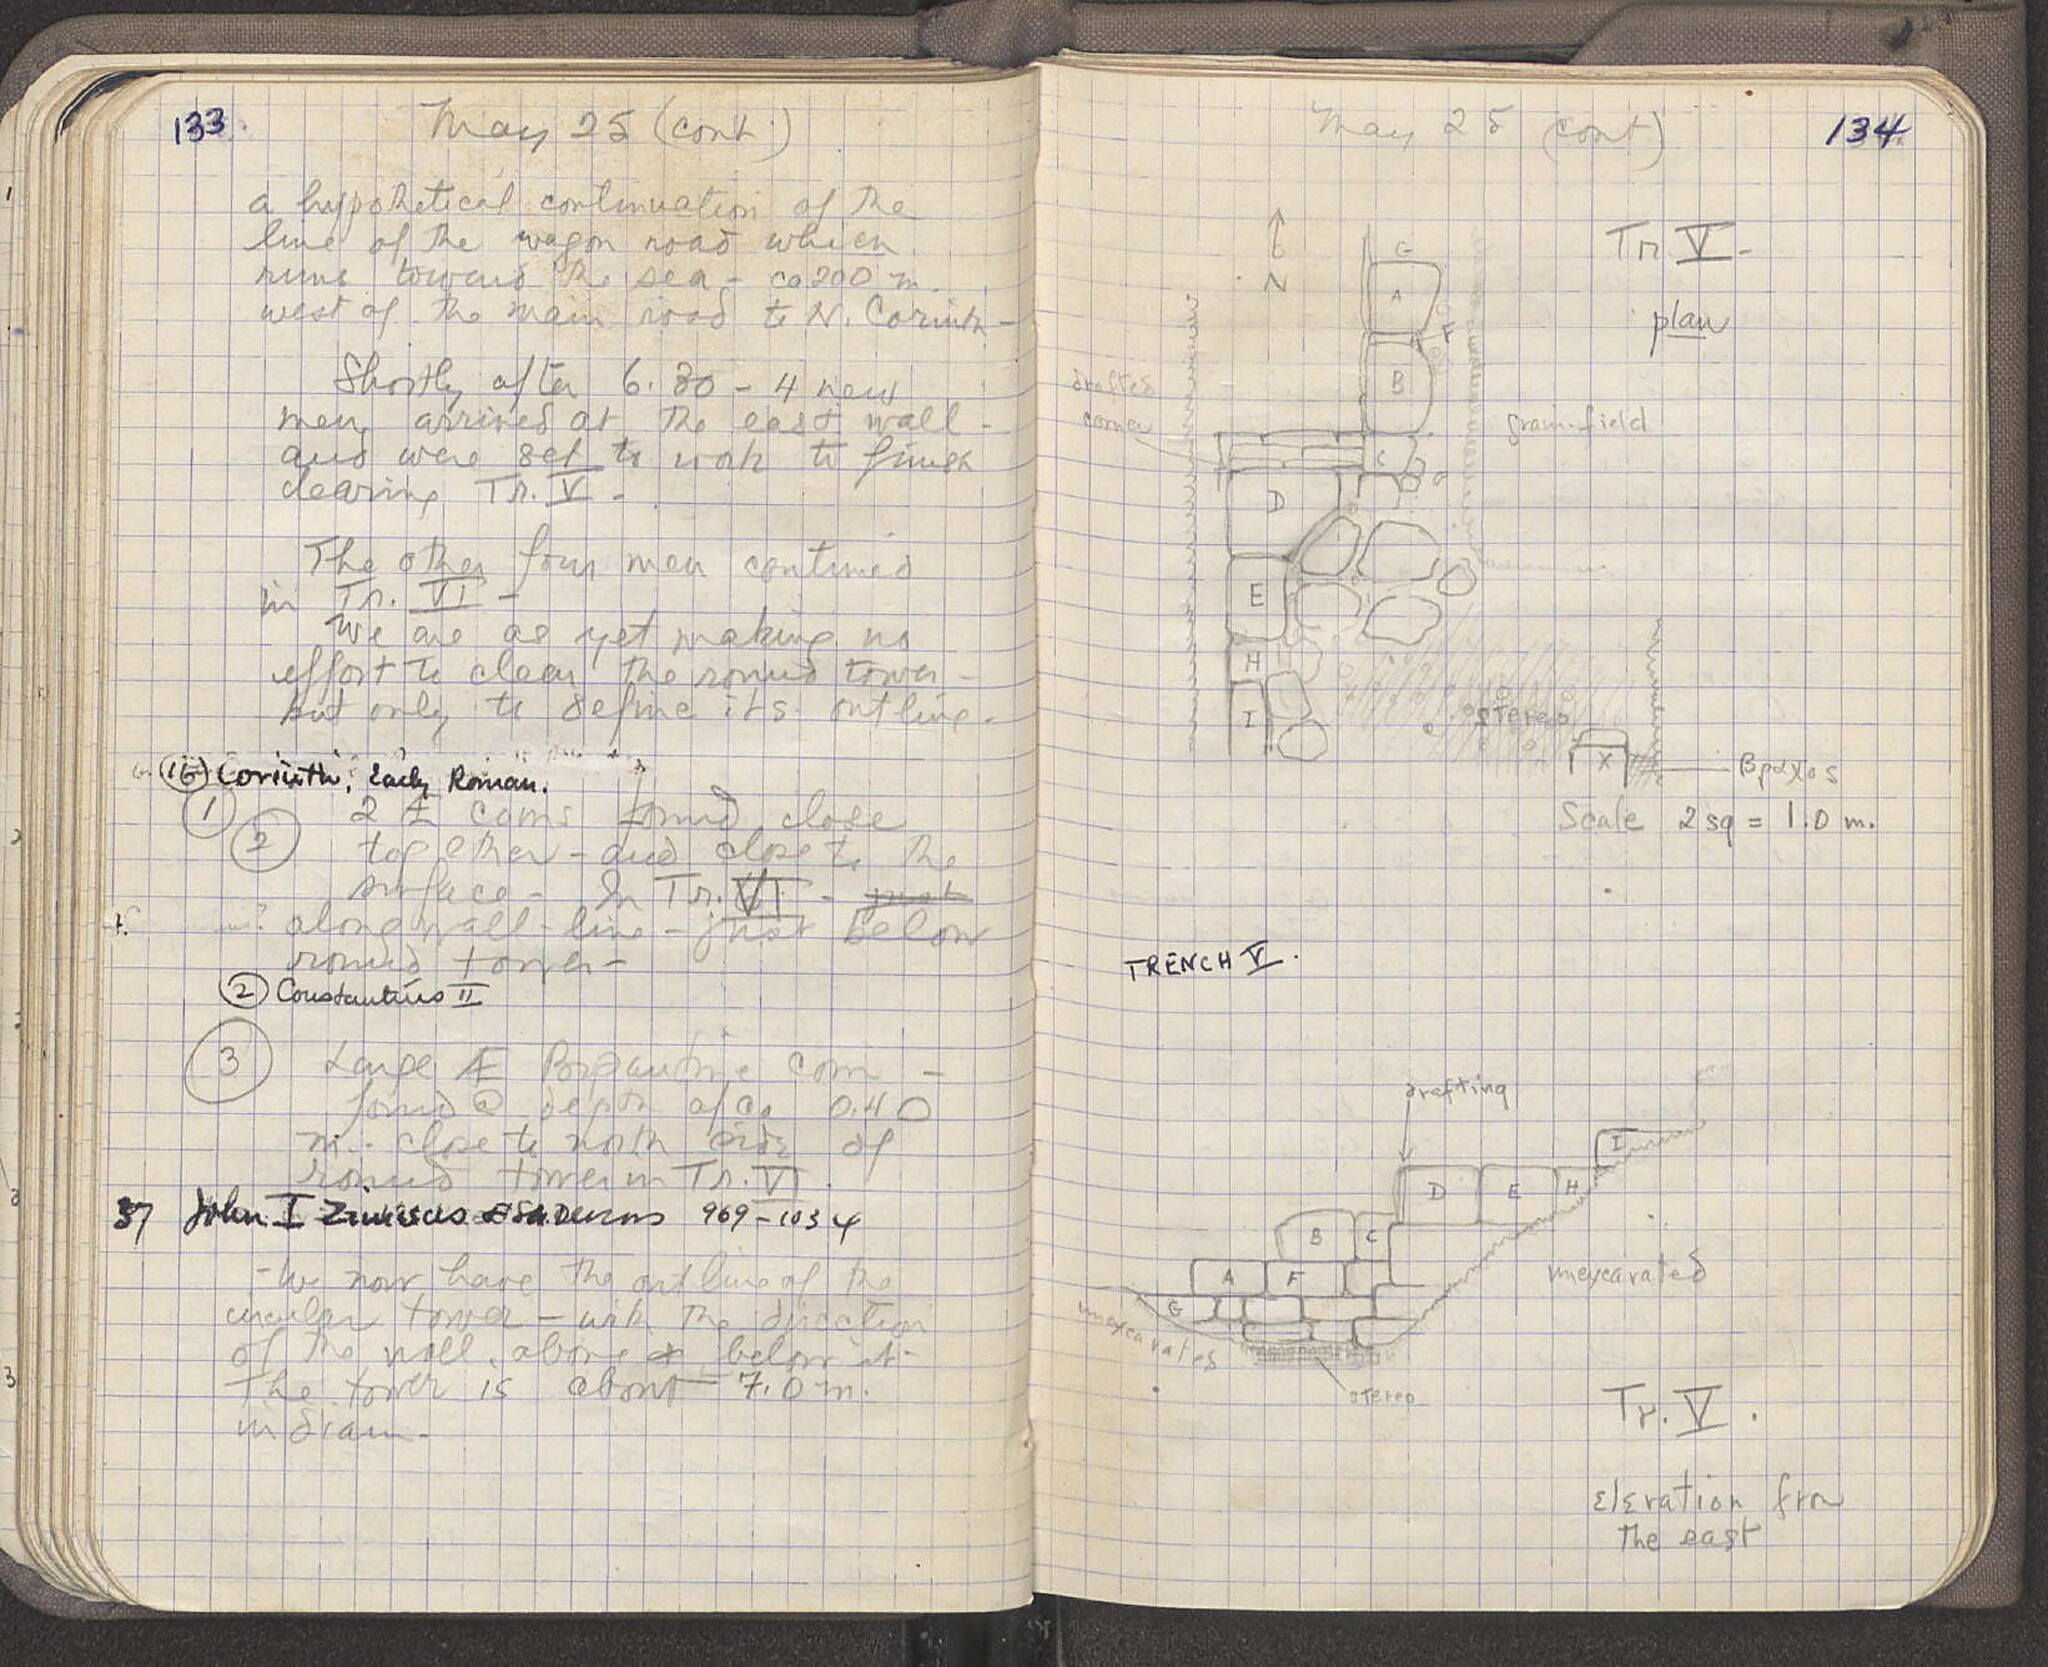 133
May 25 (cont.)
a hypothetical continuation of the
line of the wagon road which
runs toward the sea - ca 200 m.
west of the main road to N. Corinth -
Shortly after 6.30 - 4 new
men arrived at the east wall -
and were set to work to finish
clearing Tr. V -
The other four men continued
in Tr. VI -
We are as yet making no
effort to clear the round tower -
but only to define its outline.
Corinth, Early Roman.
1
2
2 Æ coins found close
together - and close to the
surface - In Tr. VI - just
along wall-line - just below
round tower -
2 Constantius II
3
Large Æ Byzantine coin -
found @ depth of ca 0.40
m. close to north side of
round tower in Tr. VI.
37 John I Zimisces 969-1034
- We now have the outline of the
circular tower - with the direction
of the wall above & below it -
The tower is about 7.0 m.
in diam -
May 25 (cont)
134
N
Tr. V -
plan
G
A
F
B
drafted
corner
grain-field
C
D
E
H
I
stereo
X
Βραχος
Scale 2 sq = 1.0 m.
TRENCH V.
drafting
I
D
E
H
B
C
A
F
G
unexcavated
unexcavated
stereo
Tr. V.
Elevation from
the east